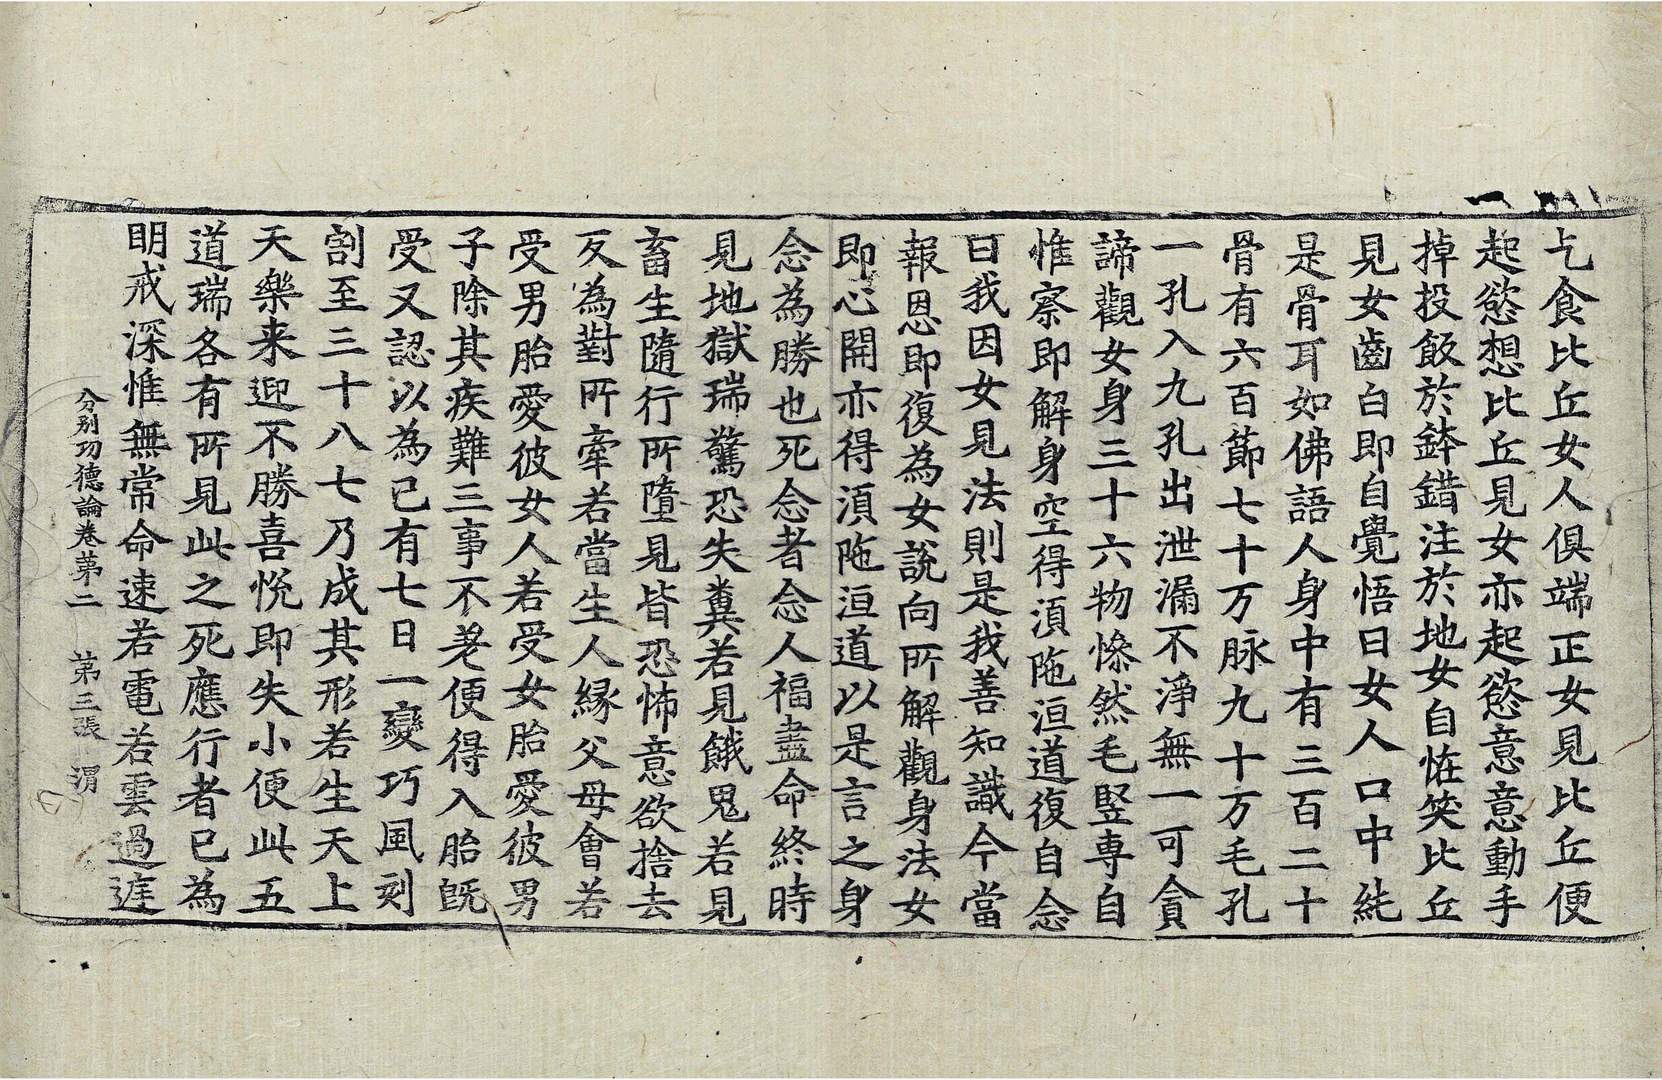 乞食比丘女人俱端正女見比丘便
起慾想比丘見女亦起慾意意動手
掉投飯於鉢錯注於地女自恠笑比丘
見女齒白即自覺悟曰女人口中純
是骨耳如佛語人身中有三百二十
骨有六百節七十万脉九十万毛孔
一孔入九孔出泄漏不淨無一可貪
諦觀女身三十六物慘然毛竪専自
惟察即解身空得湏陁洹道復自念
曰我因女見法則是我善知識今當
報恩即復為女說向所解觀身法女
即心開亦得湏陁洹道以是言之身
念為勝也死念者念人福盡命終時
見地獄瑞驚恐失糞若見餓鬼若見
畜生隨行所墮見皆恐怖意欲捨去
反為對所牽若當生人緣父母會若
受男胎愛彼女人若受女胎愛彼男
子除其疾難三事不差便得入胎旣
受又認以為已有七日一變巧風刻
割至三十八七乃成其形若生天上
天樂来迎不勝喜悅即失小便此五
道瑞各有所見此之死應行者已為
明戒深惟無常命速若電若雲過庭
分別功德論卷第二　第三張　渭